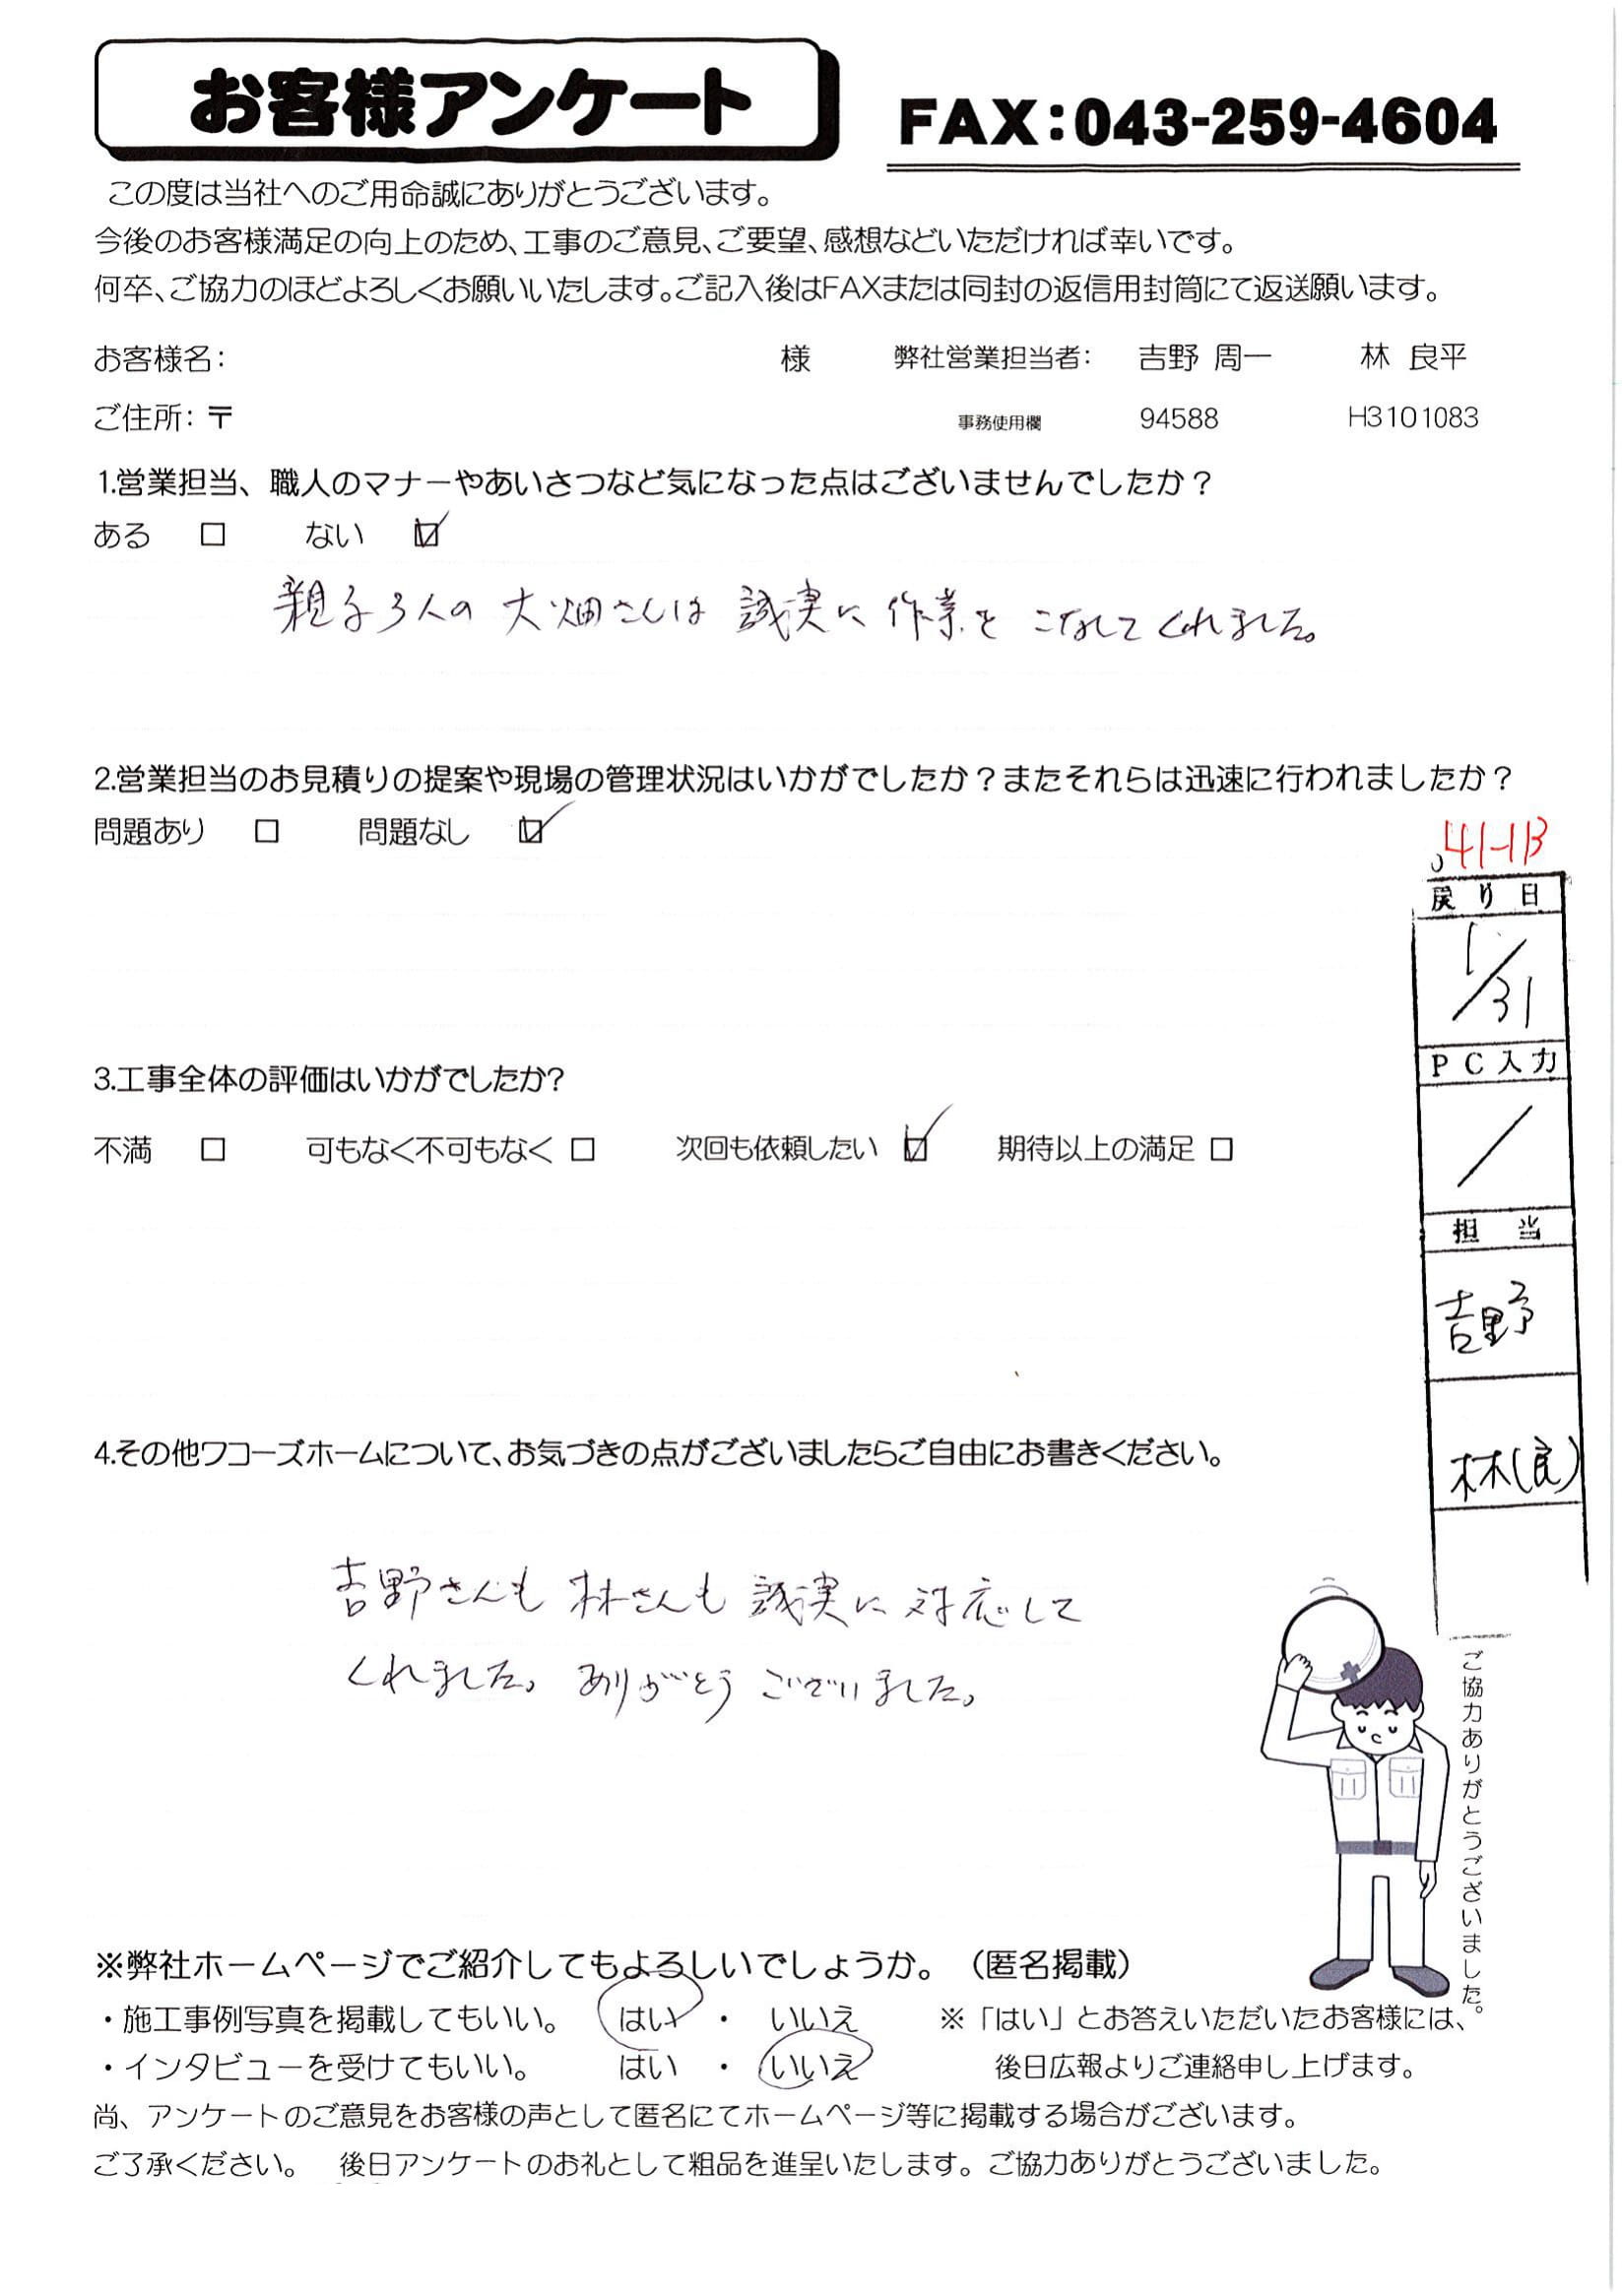 お客様アンケート
FAX:043-259-4604
この度は当社へのご用命誠にありがとうございます。
今後のお客様満足の向上のため、工事のご意見、ご要望、感想などいただければ幸いです。
何卒、ご協力のほどよろしくお願いいたします。ご記入後はFAXまたは同封の返信用封筒にて返送願います。
お客様名: 様 弊社営業担当者: 吉野 周一 林 良平
ご住所:〒 事務使用欄 94588 H3101083
1.営業担当、職人のマナーやあいさつなど気になった点はございませんでしたか？
ある □ ない ☑
親子3人の大畑さんは誠実に作業をこなしてくれました。
2.営業担当のお見積りの提案や現場の管理状況はいかがでしたか？またそれらは迅速に行われましたか？
問題あり □ 問題なし ☑
戻り日
1/31
PC入力
/
担当
吉野
林(良)
3.工事全体の評価はいかがでしたか?
不満 □ 可もなく不可もなく □ 次回も依頼したい ☑ 期待以上の満足 □
4.その他ワコーズホームについて、お気づきの点がございましたらご自由にお書きください。
吉野さんも林さんも誠実に対応して
くれました。ありがとうございました。
ご協力ありがとうございました。
※弊社ホームページでご紹介してもよろしいでしょうか。（匿名掲載）
・施工事例写真を掲載してもいい。 はい ・ いいえ ※「はい」とお答えいただいたお客様には、
・インタビューを受けてもいい。 はい ・ いいえ 後日広報よりご連絡申し上げます。
尚、アンケートのご意見をお客様の声として匿名にてホームページ等に掲載する場合がございます。
ご了承ください。 後日アンケートのお礼として粗品を進呈いたします。ご協力ありがとうございました。